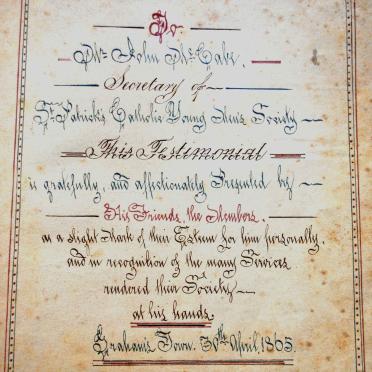 To
Mr John McCabe.
Secretary of
St Patrick's Catholic Young Men's Society
This Testimonial
is gratefully, and affectionately Presented by
His Friends, the Members.
as a slight Mark of their Esteem for him personally,
and in recognition of the many Services
rendered their Society
at his hands.
Graham's Town. 30th April, 1865.